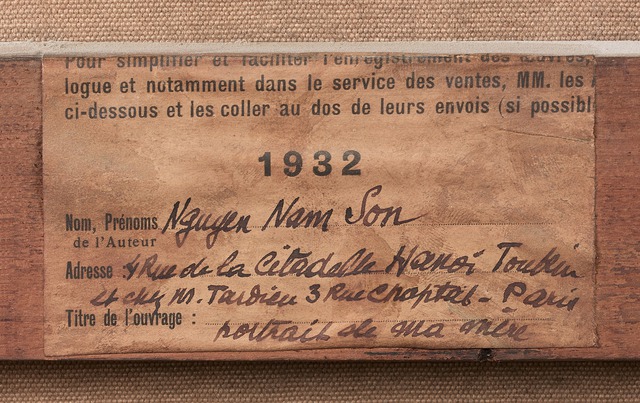 Pour simplifier et faciliter l'enregistrement des œuvres,
logue et notamment dans le service des ventes, MM. les
ci-dessous et les coller au dos de leurs envois (si possibl
1932
Nom, Prénoms Nguyen Nam Son
de l'Auteur
Adresse : 4 Rue de la Citadelle Hanoi Tonkin
et chez M. Tardieu 3 Rue Chaptal - Paris
Titre de l'ouvrage :
portrait de ma mère